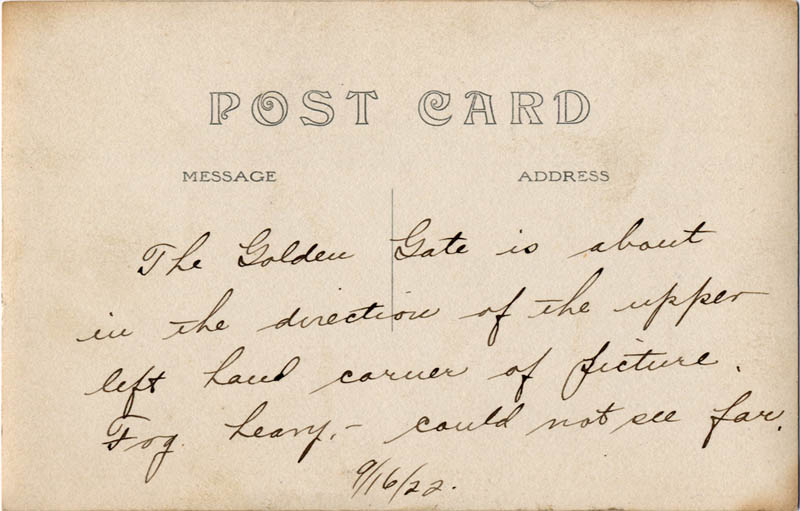 POST CARD
MESSAGE
ADDRESS
The Golden Gate is about
in the direction of the upper
left hand corner of picture.
Fog heavy,- could not see far.
9/16/22.